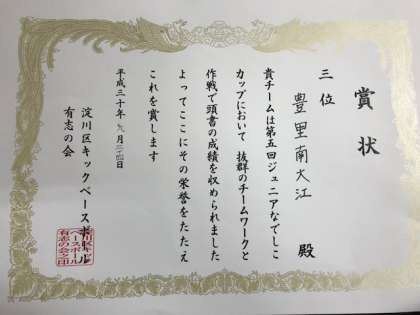 賞状
三位
豊里南大江 殿
貴チームは第五回ジュニアなでしこ
カップにおいて 抜群のチームワークと
作戦で頭書の成績を収められました
よってここにその栄誉をたたえ
これを賞します
平成三十年九月二十四日
淀川区キックベースボール
有志の会
淀川区キック
ベースボール
有志の会之印